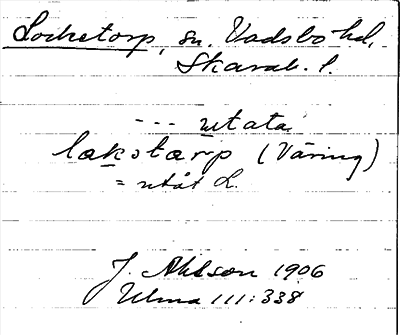 Locketorp, sn. Vadsbo hd,
Skarab. l.
--- utata
lakstarp (Väring)
= utåt L.
J. Ahlson 1906
Ulma 111:338